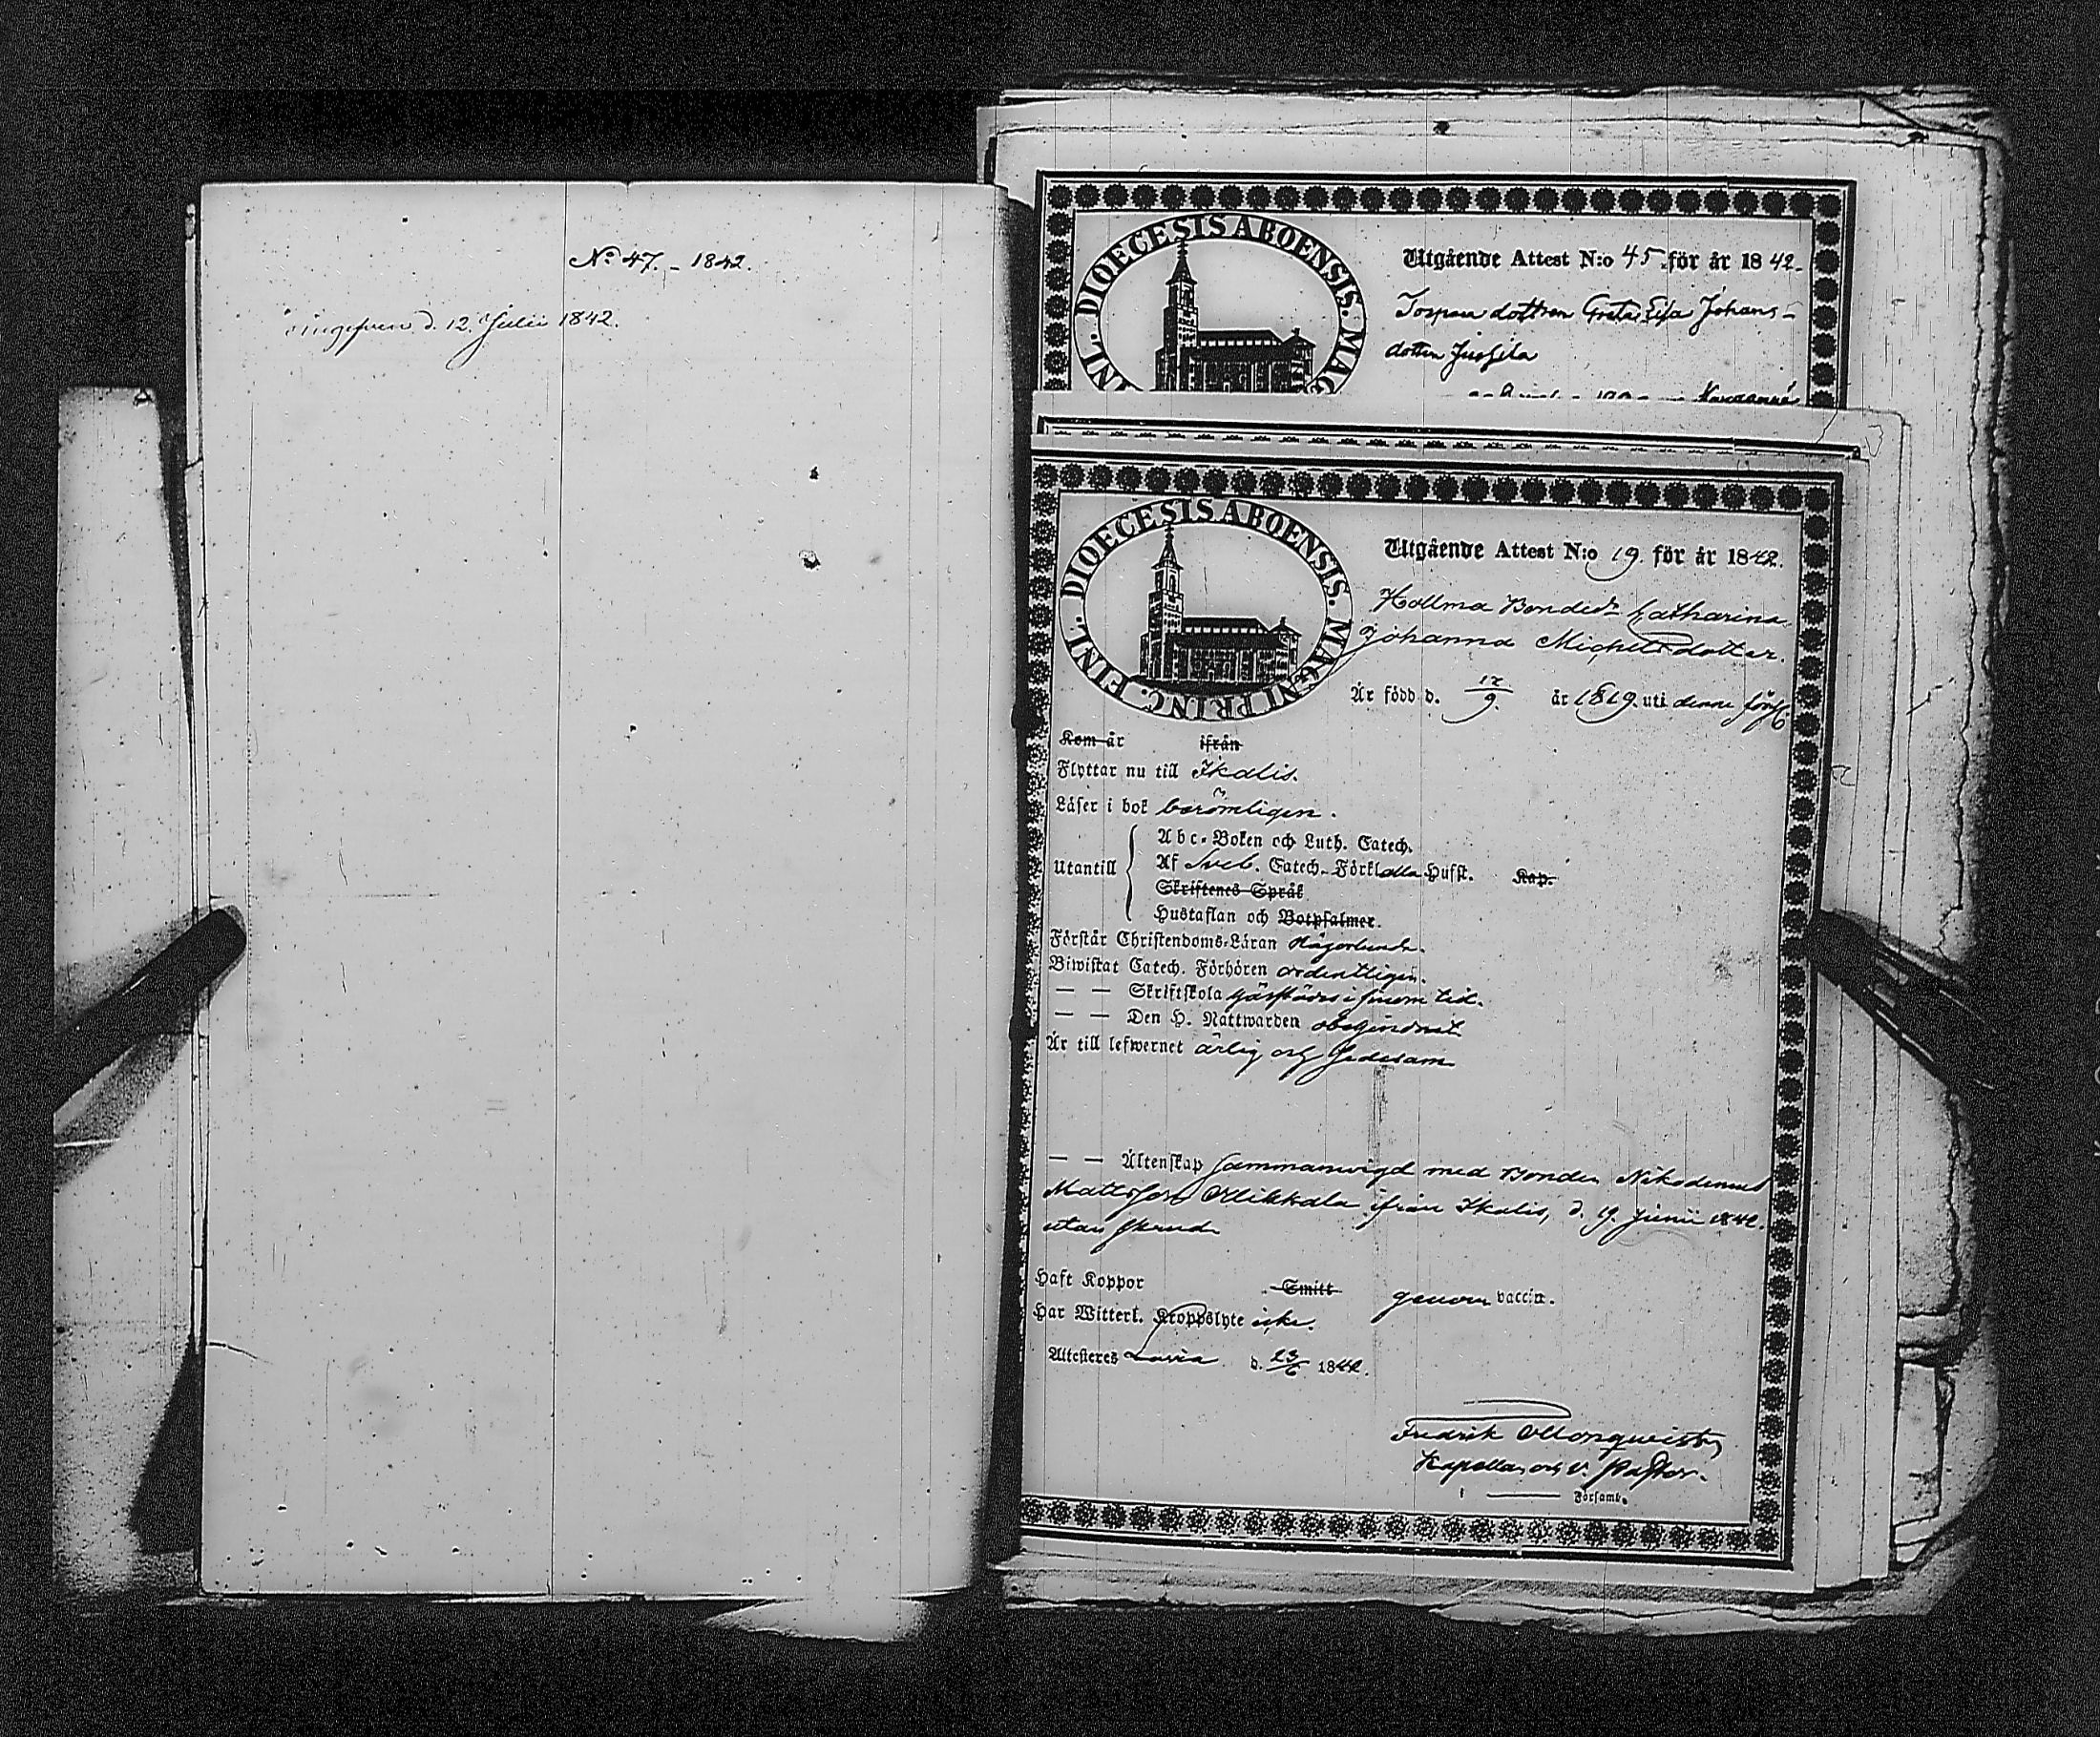 No 47. - 1842.
d. 12. Julii 1842.
DIOECESIS ABOENSIS. MAG
INL.
Utgående Attest N:o 45 för år 1842.
dottren Greta Lisa Johans-
dotter Jussila
DIOECESIS ABOENSIS. MAGNI PRINC. FINL.
Utgående Attest N:o 19. för år 1842.
Hollma Bondedr Catharina
Johanna Michelsdotter.
Är född d. 12/9. år 1819. uti denne förs
Kom år ifrån
Flyttar nu till Ikalis.
Läser i bok berömligen.
Abc-Boken och Luth. Catech.
Utantill Af Sveb. Catech. Förkl. alla Husst. Kap.
Skriftenes Språk
Hustaflan och Botpsalmer.
Förstår Christendoms-Läran någorlunda.
Biwistat Catech. Förhören ordentligen.
— — Skriftskola i sinom tid.
— — Den H. Nattwarden obehindrat
Är till lefwernet ärlig och sedesam
— — Äktenskap sammanvigd med Bonden Nikodemus
Mattsson Mikkala ifrån Ikalis, d. 19. Junii 1842.
utan
Haft Koppor Smitt genom vaccin.
Har Witterl. Kroppslyte icke.
Attesteres Lavia d. 23/6 1842.
Fredrik Monqwist
Kapellan och v. Pastor.
i Församl.